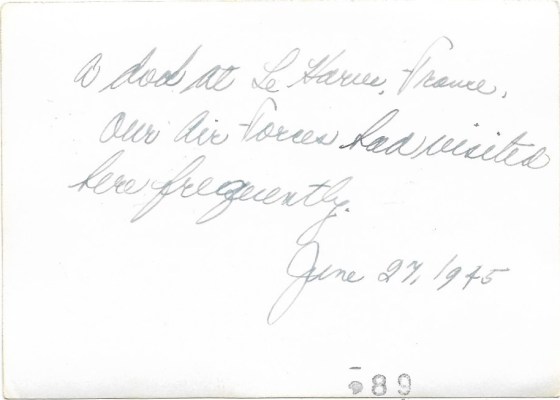 A dock at Le Harve, France.
Our Air Forces had visited
here frequently.
June 27, 1945
89